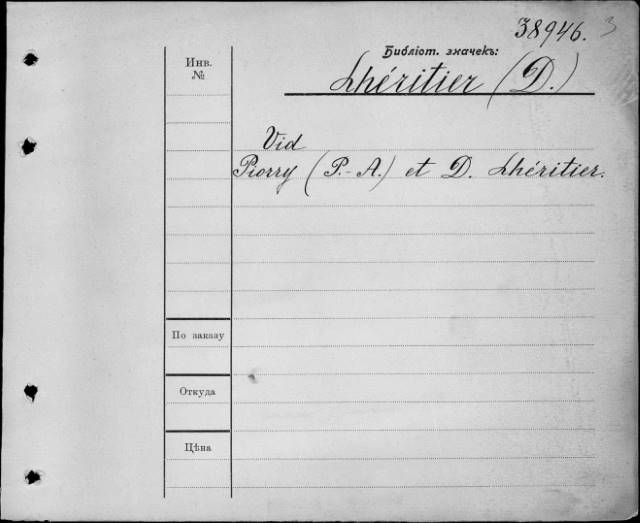 38946. 3
Библіот. значекъ:
Инв.
№
Lhéritier (D.)
Vid
Piorry (P.-A.) et D. Lhéritier.
По заказу
Откуда
Цѣна